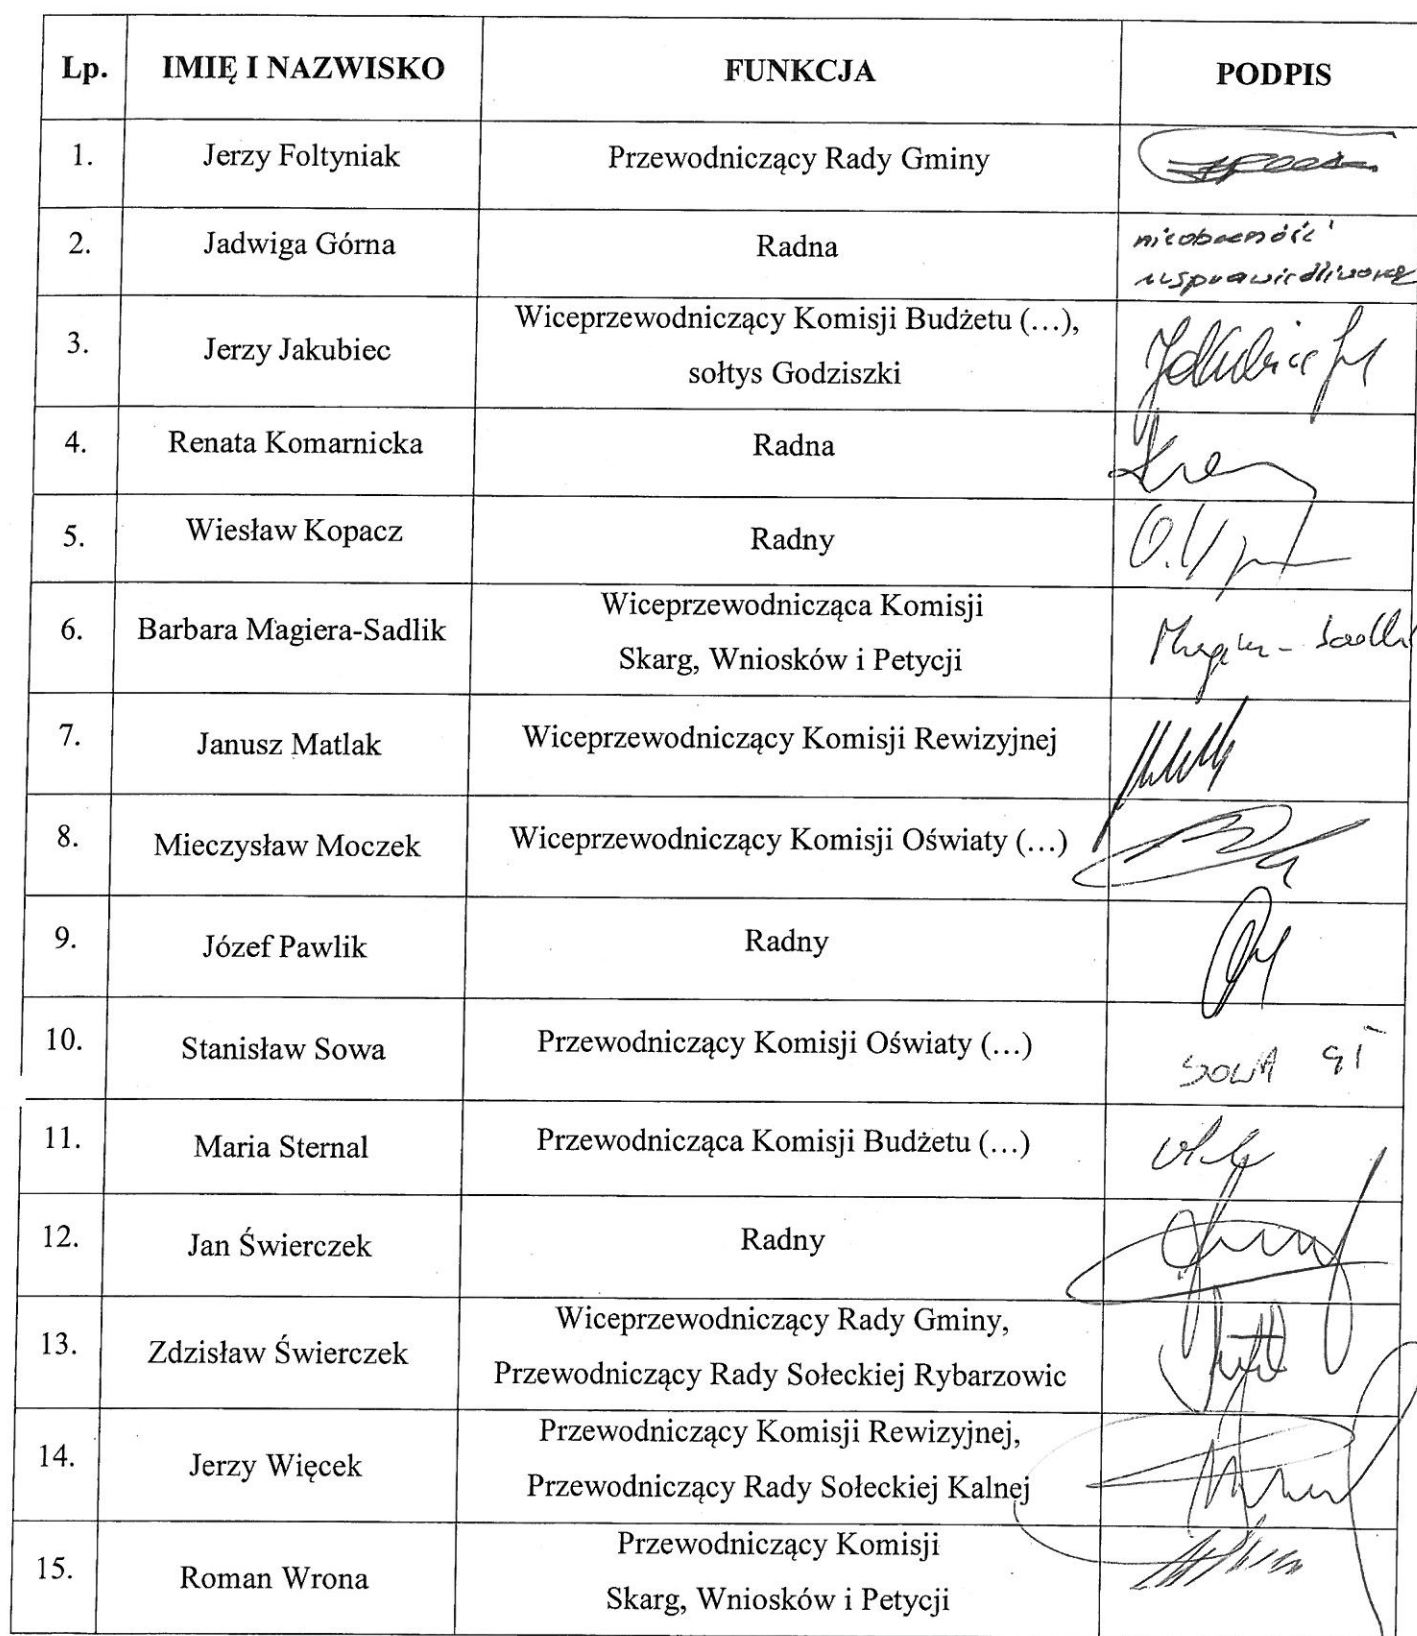 Lp. IMIĘ I NAZWISKO FUNKCJA PODPIS
1. Jerzy Foltyniak Przewodniczący Rady Gminy
2. Jadwiga Górna Radna nieobecność
usprawiedliwiona
3. Jerzy Jakubiec Wiceprzewodniczący Komisji Budżetu (…),
sołtys Godziszki
4. Renata Komarnicka Radna
5. Wiesław Kopacz Radny
6. Barbara Magiera-Sadlik Wiceprzewodnicząca Komisji
Skarg, Wniosków i Petycji
7. Janusz Matlak Wiceprzewodniczący Komisji Rewizyjnej
8. Mieczysław Moczek Wiceprzewodniczący Komisji Oświaty (…)
9. Józef Pawlik Radny
10. Stanisław Sowa Przewodniczący Komisji Oświaty (…) SOWA ST
11. Maria Sternal Przewodnicząca Komisji Budżetu (…)
12. Jan Świerczek Radny
13. Zdzisław Świerczek Wiceprzewodniczący Rady Gminy,
Przewodniczący Rady Sołeckiej Rybarzowic
14. Jerzy Więcek Przewodniczący Komisji Rewizyjnej,
Przewodniczący Rady Sołeckiej Kalnej
15. Roman Wrona Przewodniczący Komisji
Skarg, Wniosków i Petycji